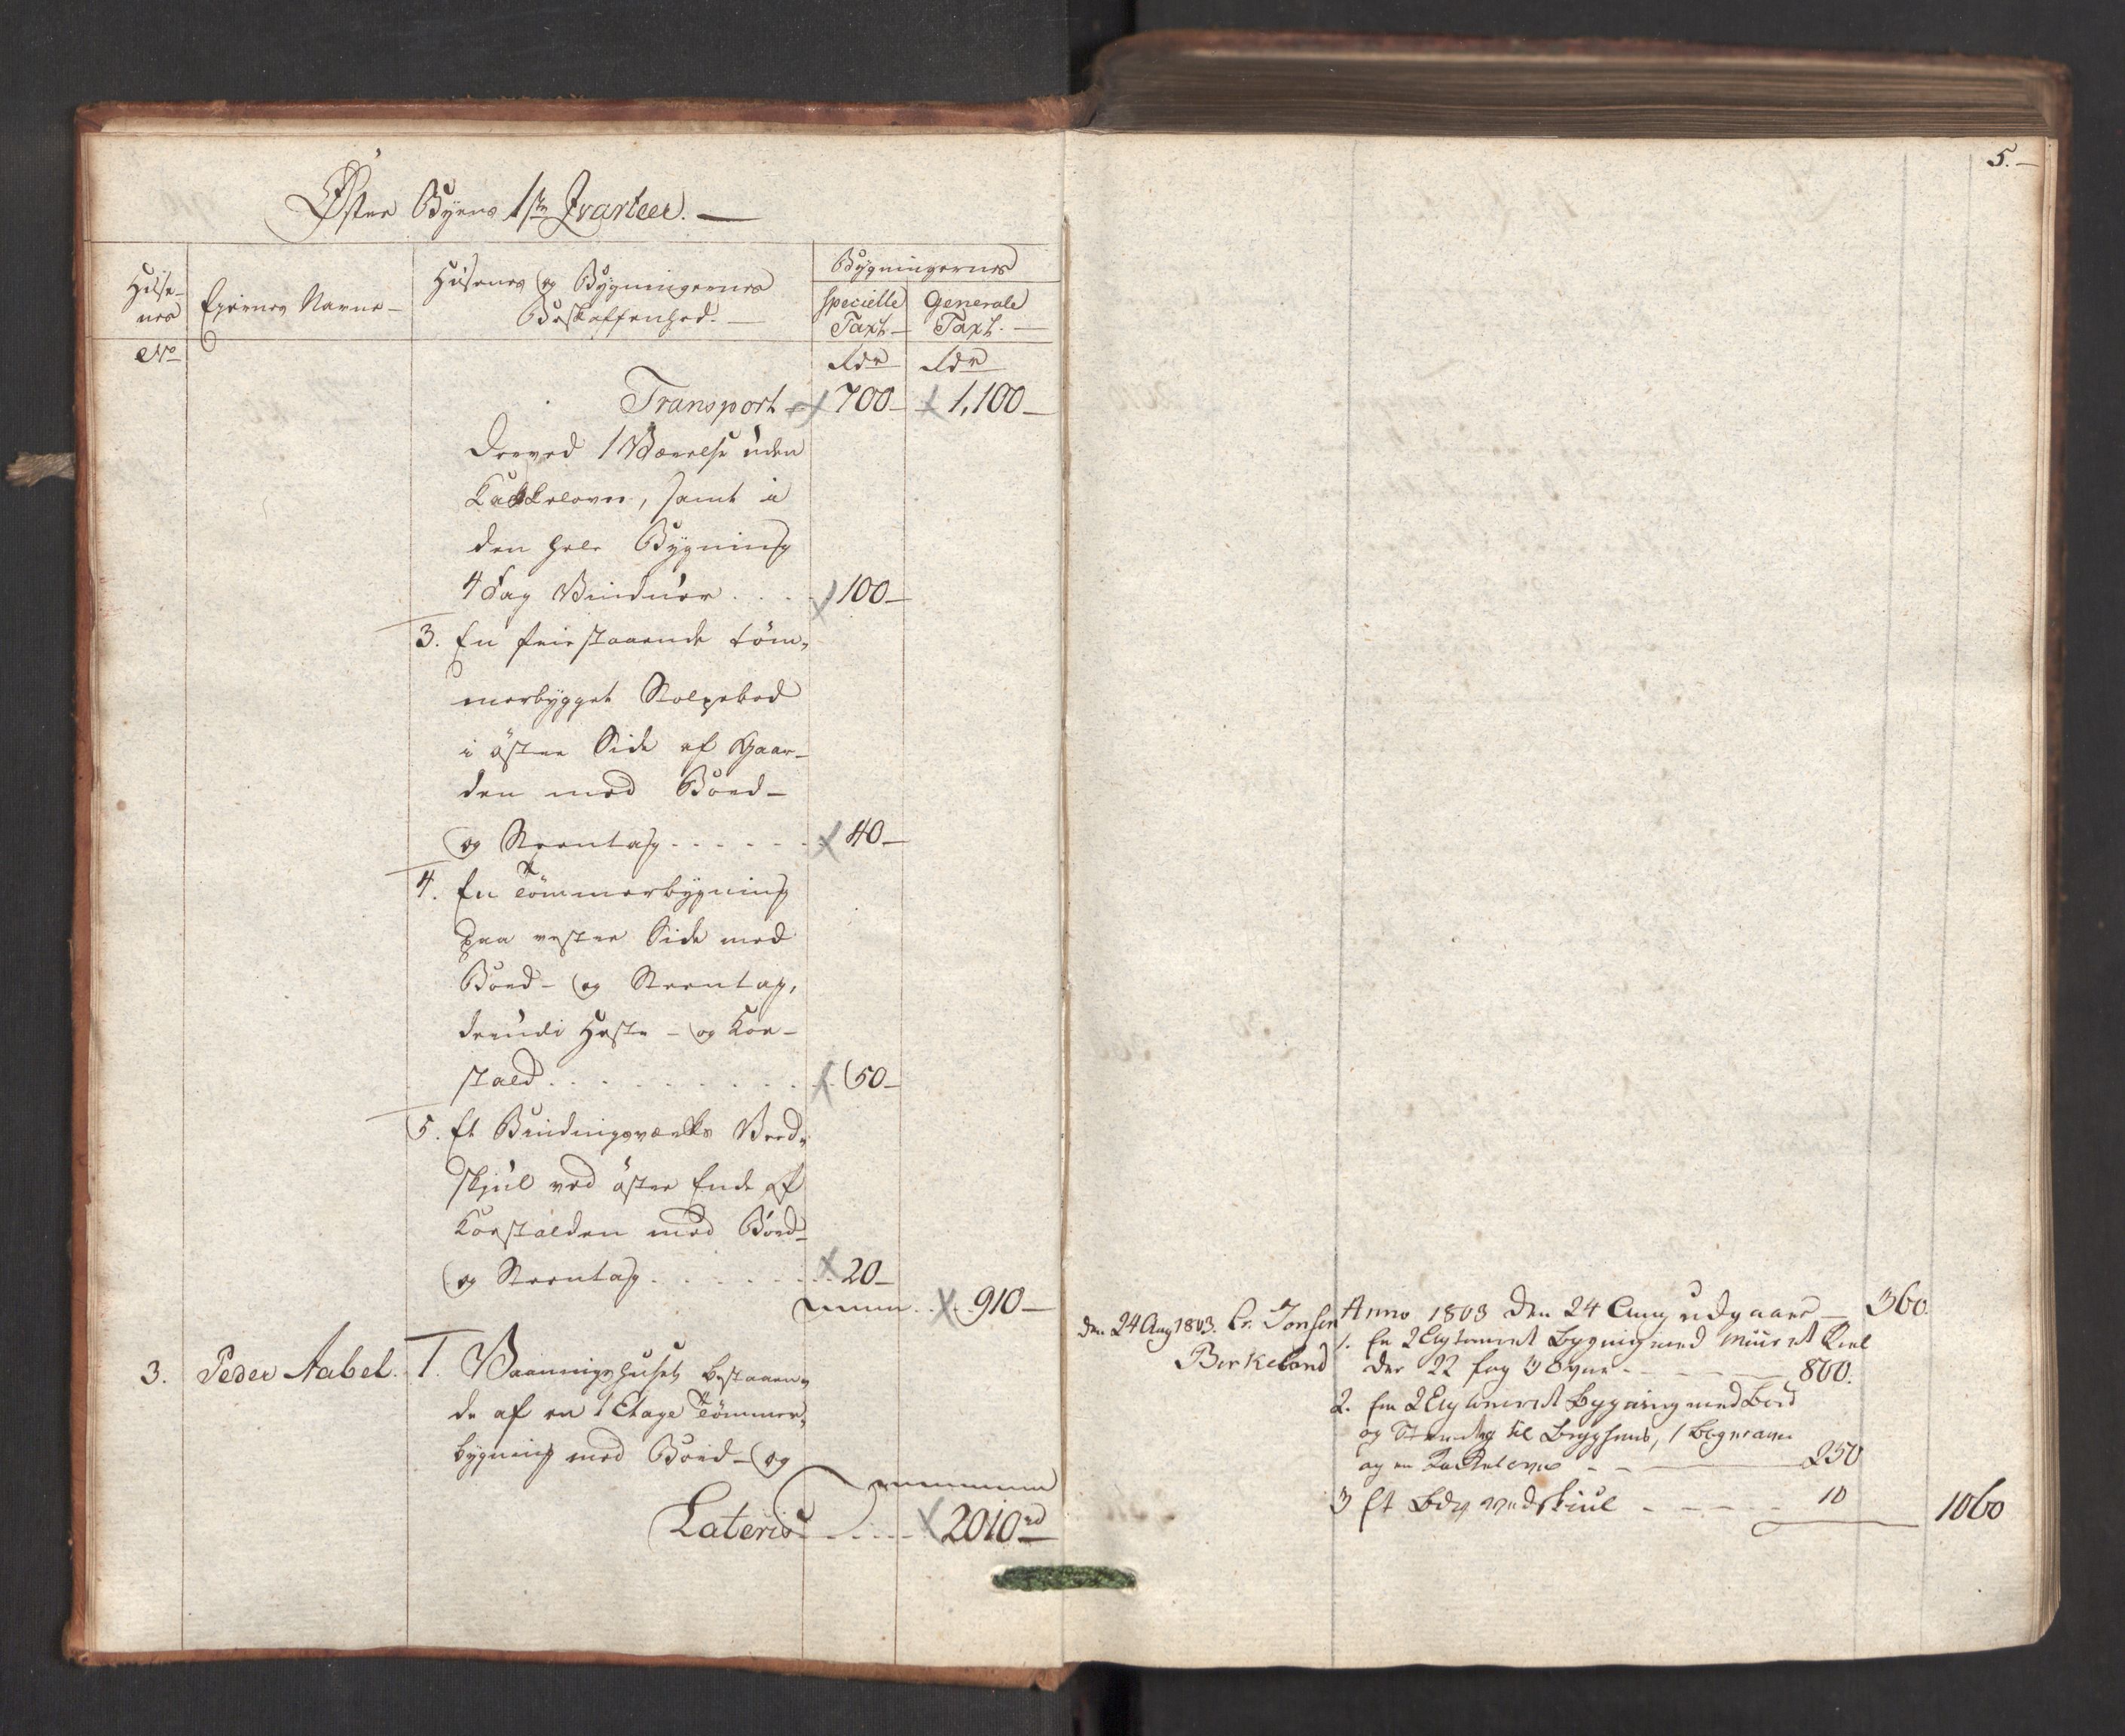 Øster Byens 1ste Qvarteer. —
Huse-
nes
No
Eyernes Navne —
Husenes og Bygningernes
Beskaffenhed. —
Bygningernes
specielle
Taxt —
Generale
Taxt. —
Rdr
Rdr
Transport — 700 — 1,100 —
derved 1 Værelse uden
Kakkelovn, samt i
den hele Bygning
4 Fag Vinduer . . . 100 —
3. En friestaaende töm-
merbygget Stolpebod
i öster Side af Gaar-
den med Bord-
og Steentag . . . . . . 40 —
4. En Tömmerbygning
paa vester Side med
Bord- og Steentag,
derudi Heste- og Koe-
stald . . . . . . . . . 50 —
5. Et Bindingsværks Veed-
skjul ved öster Ende af
Koestalden med Bord-
og Steentag . . . . . . . 20 —
910 —
3. Peder Aabel. 1. Vaaningshuset bestaaen-
de af en 1 Etage Tömmer-
bygning med Bord- og
Lateris . . . . . 2010 rd
5. —
den 24 Aug 1803. Cr. Jonsen
Birkeland
Anno 1803 den 24 Aug udgaaer — 360.
1. En 2 Etg tömmret bygning med
der 22 fag 3 Ovne — 800.
2. En 2 Etg tömret Bygning med Bord
og Steentag til Bryghuus, 1
og en Kakkelovn — 250
3 Et vedskiul — 10
1060